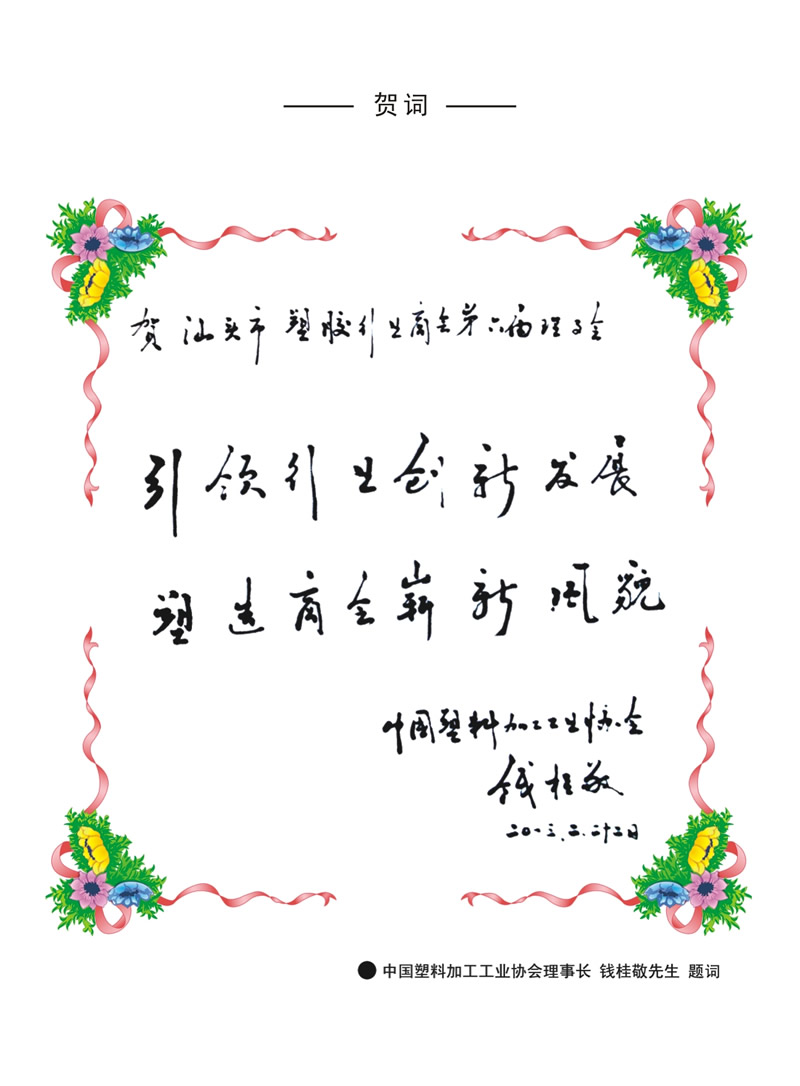 贺词
贺汕头市塑胶行业商会第六届理事会
引领行业创新发展
塑造商会崭新风貌
中国塑料加工工业协会
钱桂敬
二〇一三.二.二十二日
中国塑料加工工业协会理事长 钱桂敬先生 题词